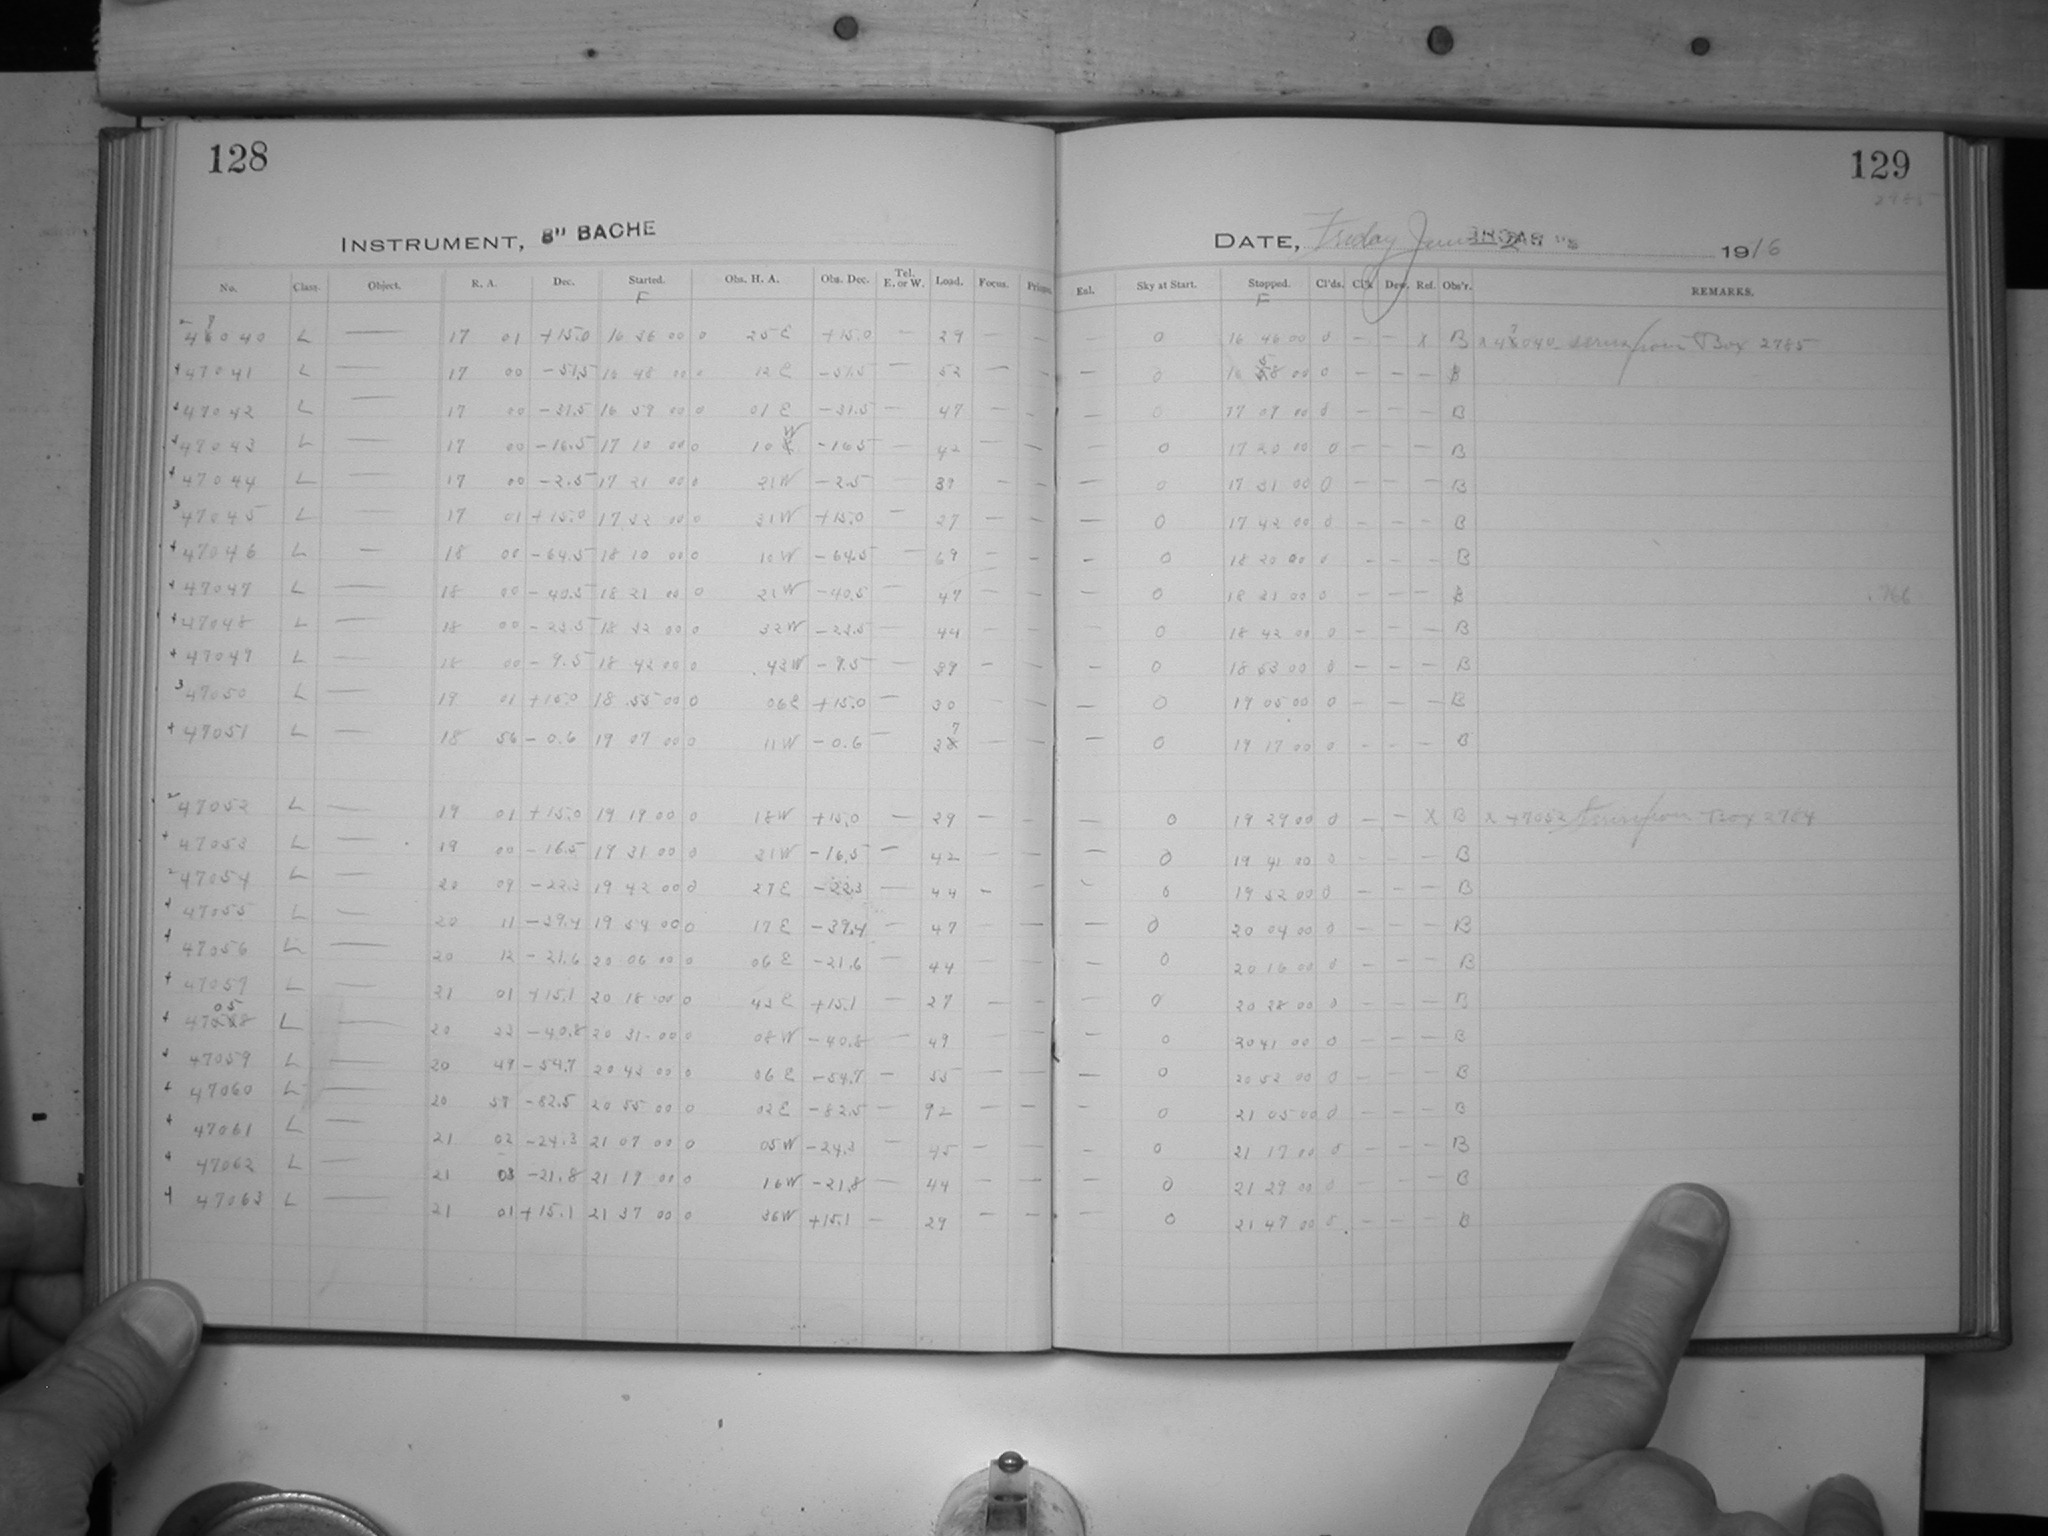 128
INSTRUMENT, 8" BACHE
No. Class. Object. R. A. Dec. Started. Obs. H. A. Obs. Dec. Tel. E. or W. Load. Focus. Prisms.
F
47040 L — 17 01 +15.0 16 36 00 0 25 E +15.0 — 29 —
4 47041 L — 17 00 -51.5 16 48 00 0 12 E -51.5 — 52 — —
4 47042 L — 17 00 -31.5 16 59 00 0 01 E -31.5 — 47 — —
4 47043 L — 17 00 -16.5 17 10 00 0 10 W -16.5 — 42 — —
4 47044 L — 17 00 -2.5 17 21 00 0 21 W -2.5 — 39 — —
3 47045 L — 17 01 +15.0 17 32 00 0 31 W +15.0 — 27 — —
4 47046 L — 18 00 -64.5 18 10 00 0 10 W -64.5 — 69 — —
4 47047 L — 18 00 -40.5 18 21 00 0 21 W -40.5 — 47 — —
4 47048 L — 18 00 -23.5 18 32 00 0 32 W -23.5 — 44 — —
4 47049 L — 18 00 -9.5 18 43 00 0 43 W -9.5 — 39 — —
3 47050 L — 19 01 +15.0 18 55 00 0 06 E +15.0 — 30 — —
4 47051 L — 18 56 -0.6 19 07 00 0 11 W -0.6 — 37 — —
47052 L — 19 01 +15.0 19 19 00 0 18 W +15.0 — 29 — —
4 47053 L — 19 00 -16.5 19 31 00 0 31 W -16.5 — 42 — —
47054 L — 20 09 -22.3 19 42 00 0 27 E -22.3 — 44 — —
4 47055 L — 20 11 -39.4 19 54 00 0 17 E -39.4 — 47 — —
4 47056 L — 20 12 -21.6 20 06 00 0 06 E -21.6 — 44 — —
4 47057 L — 21 01 +15.1 20 18 00 0 43 E +15.1 — 27 — —
4 47058 L — 20 23 -40.8 20 31 00 0 08 W -40.8 — 49 — —
4 47059 L — 20 49 -54.7 20 43 00 0 06 E -54.7 — 55 — —
4 47060 L — 20 57 -82.5 20 55 00 0 02 E -82.5 — 92 — —
4 47061 L — 21 02 -24.3 21 07 00 0 05 W -24.3 — 45 — —
4 47062 L — 21 03 -21.8 21 19 00 0 16 W -21.8 — 44 — —
4 47063 L — 21 01 +15.1 21 37 00 0 36 W +15.1 — 29 — —
129
2785
DATE, Friday June 19 16
Enl. Sky at Start. Stopped. Cl'ds. Cl'k Dew. Ref. Obs'r. REMARKS.
F
— 0 16 46 00 0 — — x B x 47040 series from Box 2785
— 0 16 58 00 0 — — — B
— 0 17 09 00 0 — — — B
— 0 17 20 00 0 — — — B
— 0 17 31 00 0 — — — B
— 0 17 42 00 0 — — — B
— 0 18 20 00 0 — — — B
— 0 18 31 00 0 — — — B
.766
— 0 18 42 00 0 — — — B
— 0 18 53 00 0 — — — B
— 0 19 05 00 0 — — — B
— 0 19 17 00 0 — — — B
— 0 19 29 00 0 — — x B x 47052 series from Box 2784
— 0 19 41 00 0 — — — B
— 0 19 52 00 0 — — — B
— 0 20 04 00 0 — — — B
— 0 20 16 00 0 — — — B
— 0 20 28 00 0 — — — B
— 0 20 41 00 0 — — — B
— 0 20 53 00 0 — — — B
— 0 21 05 00 0 — — — B
— 0 21 17 00 0 — — — B
— 0 21 29 00 0 — — — B
— 0 21 47 00 0 — — — B